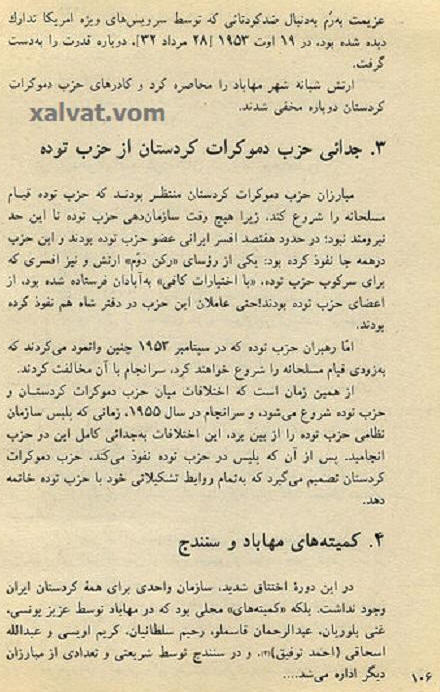 عزیمت به‌رُم به‌دنبال ضدکودتائی که توسط سرویس‌های ویژه امریکا تدارک
دیده شده بود، در ۱۹ اوت ۱۹۵۳ [۲۸ مرداد ۳۲]، دوباره قدرت را به‌دست
گرفت.
ارتش شبانه شهر مهاباد را محاصره کرد و کادرهای حزب دموکرات
کردستان دوباره مخفی شدند.
xalvat.vom
۳. جدائی حزب دموکرات کردستان از حزب توده
مبارزان حزب دموکرات کردستان منتظر بودند که حزب توده قیام
مسلحانه را شروع کند، زیرا هیچ وقت سازمان‌دهی حزب توده تا این حد
نیرومند نبود؛ در حدود هفتصد افسر ایرانی عضو حزب توده بودند و این حزب
درهمه جا نفوذ کرده بود: یکی از رؤسای «رکن دوّم» ارتش و نیز افسری که
برای سرکوب حزب توده، «با اختیارات کافی» به‌آبادان فرستاده شده بود، از
اعضای حزب توده بودند!حتی عاملان این حزب در دفتر شاه هم نفوذ کرده
بودند.
امّا رهبران حزب توده که در سپتامبر ۱۹۵۳ چنین وانمود می‌کردند که
به‌زودی قیام مسلحانه را شروع خواهند کرد، سرانجام با آن مخالفت کردند.
از همین زمان است که اختلافات میان حزب دموکرات کردستان و
حزب توده شروع می‌شود، و سرانجام در سال ۱۹۵۵، زمانی که پلیس سازمان
نظامی حزب توده را از بین برد، این اختلافات به‌جدائی کامل این دو حزب
انجامید. پس از آن که پلیس در حزب توده نفوذ می‌کند، حزب دموکرات
کردستان تصمیم می‌گیرد که به‌تمام روابط تشکیلاتی خود با حزب توده خاتمه
دهد.
۴. کمیته‌های مهاباد و سنندج
در این دورهٔ اختناق شدید، سازمان واحدی برای همهٔ کردستان ایران
وجود نداشت. بلکه «کمیته‌های» محلی بود که در مهاباد توسط عزیز یوسفی،
غنی بلوریان، عبدالرحمان قاسملو، رحیم سلطانیان، کریم اویسی و عبدالله
اسحاقی (احمد توفیق)، و در سنندج توسط شریعتی و تعدادی از مبارزان
دیگر اداره می‌شد....
۱۰۶